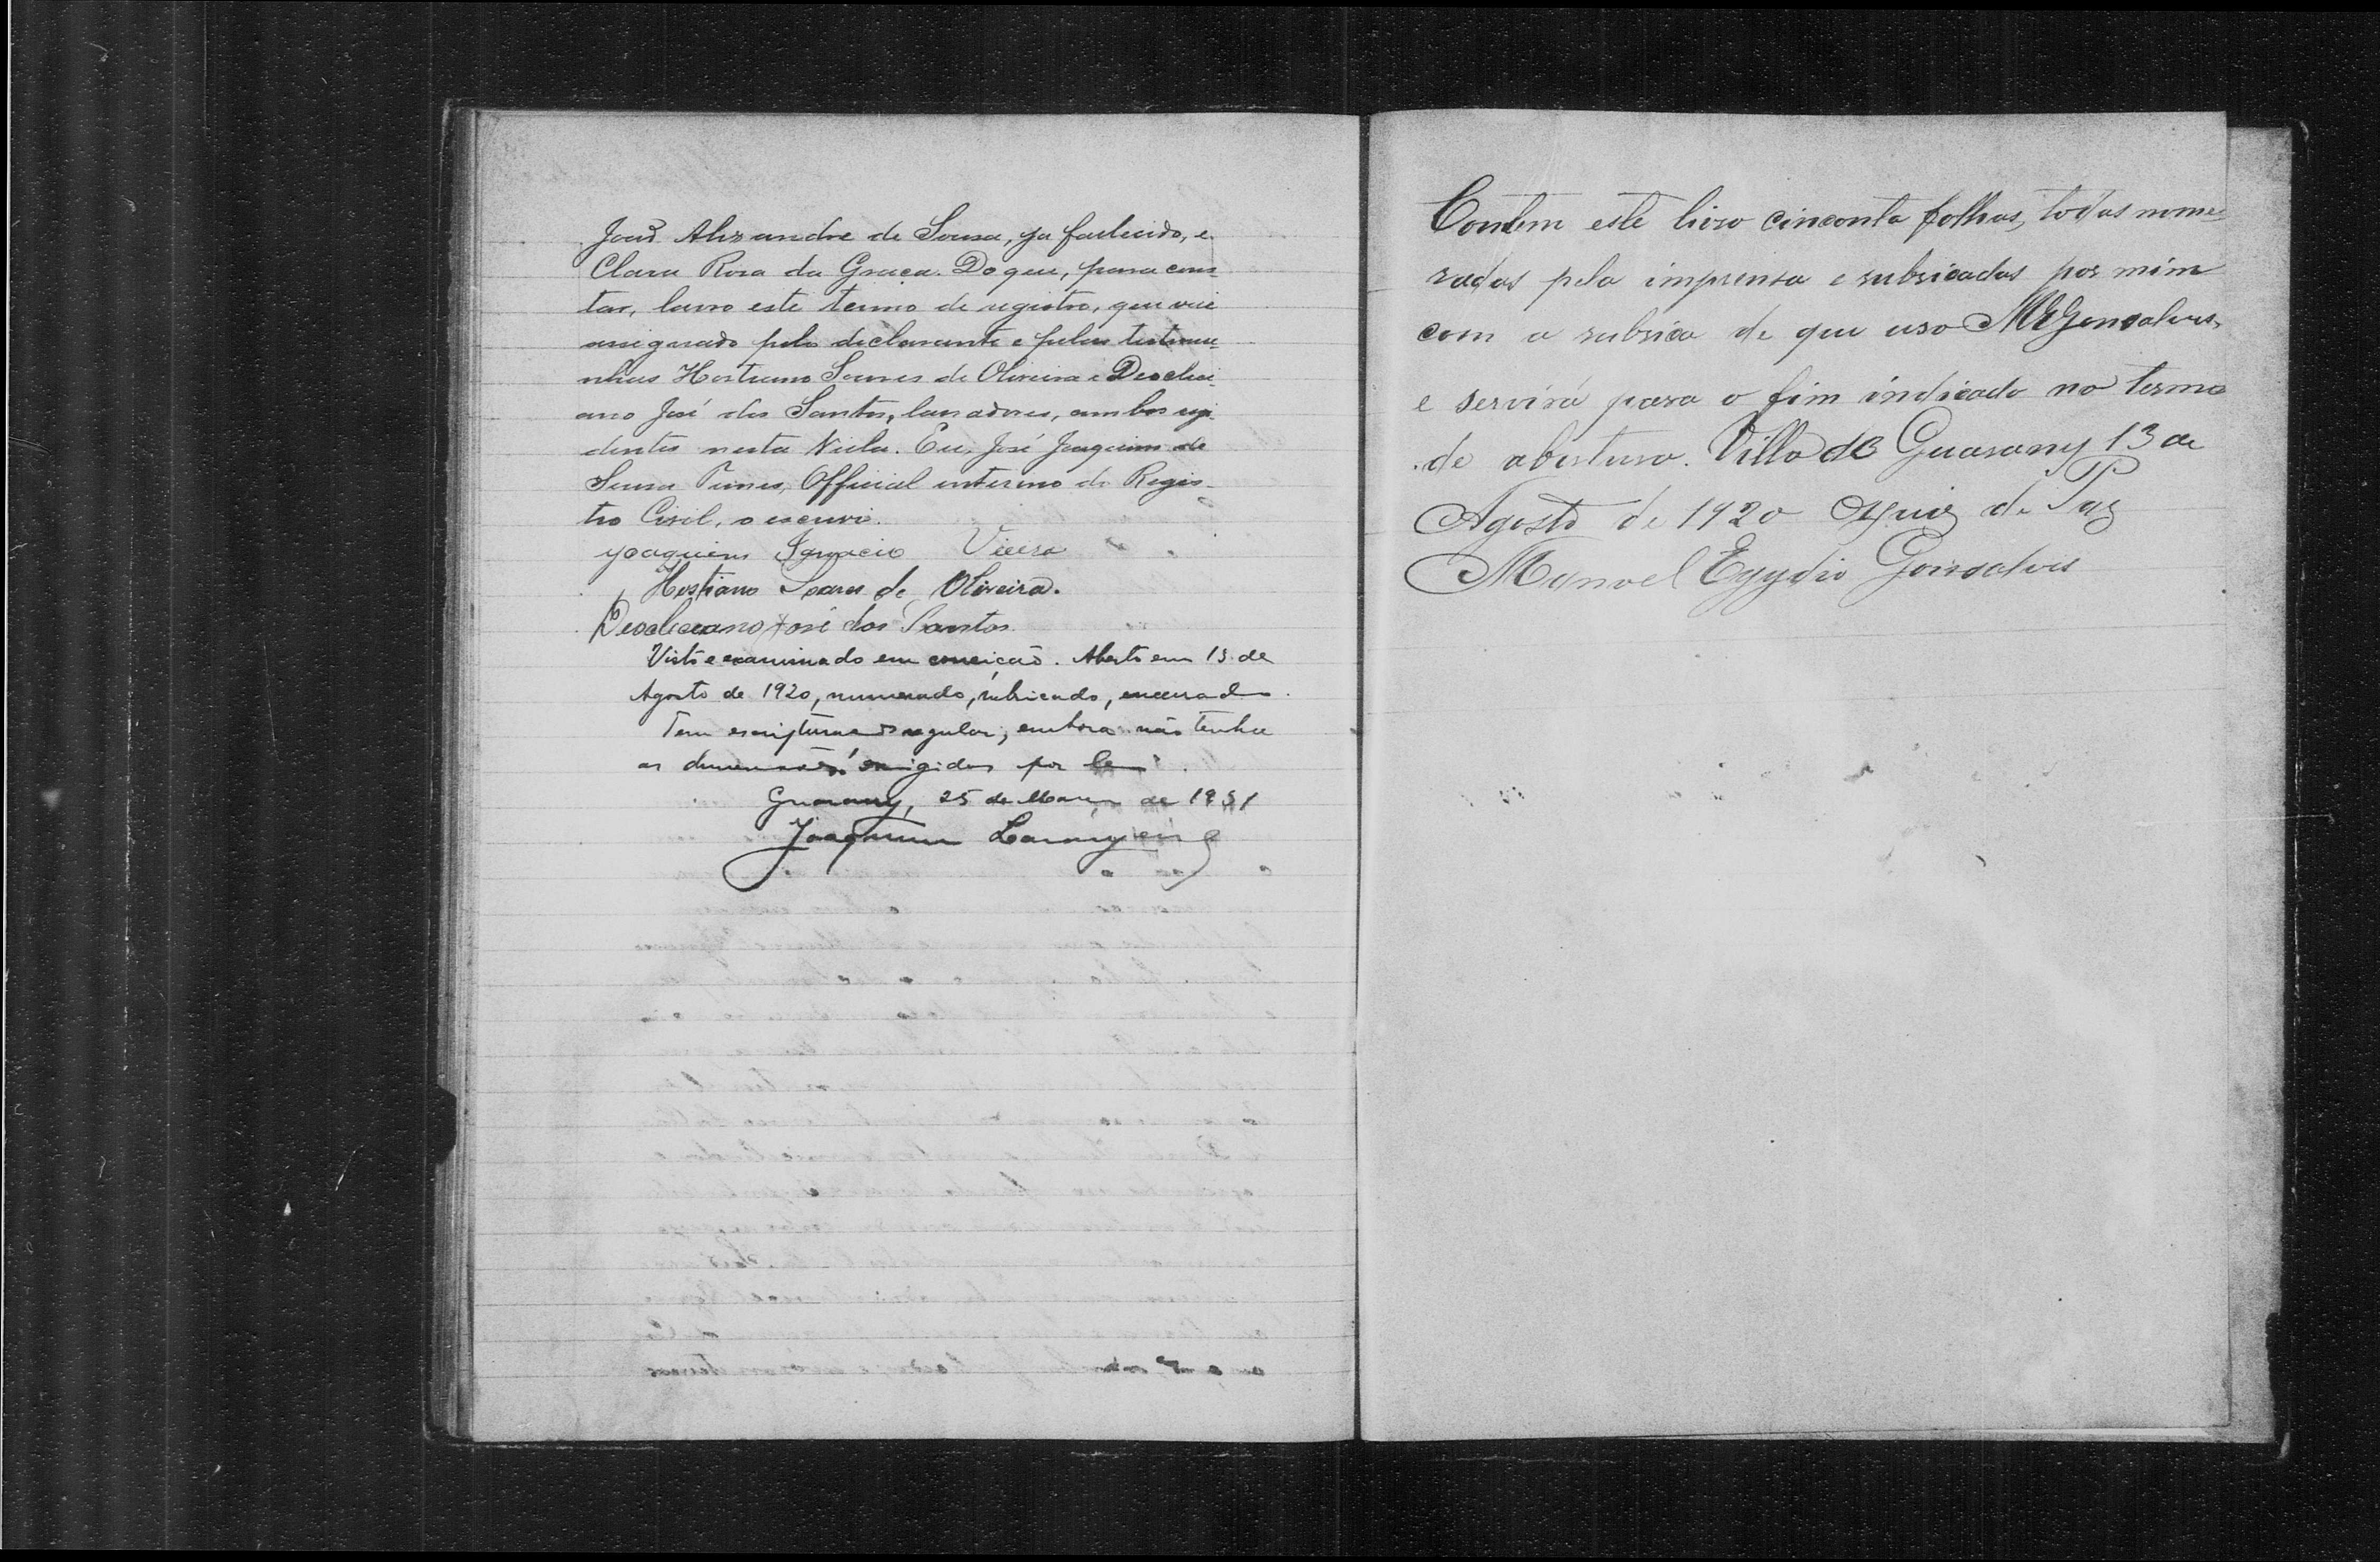 João Alexandre de Sousa, ja fallecido, e
Clara Rosa da Graça. Do que, para cons-
tar, lavro este termo de registro, que vae
assignado pelo declarante e pelas testemu-
nhas Hostiano Soares de Oliveira e Deocleci-
ano José dos Santos, lavradores, ambos resi-
dentes nesta Villa. Eu, José Joaquim de
Sousa Official interino do Regis-
tro Civil, o escrevi.
Joaquim Ignacio Vieira
Hostiano Soares de Oliveira.
Deocleciano José dos Santos
Visto e examinado em correição. Aberto em 13 de
Agosto de 1920, numerado, rubricado, encerrado.
Tem escripturação regular, embora não tenha
as dimensões exigidas por lei.
Guarany, 25 de Março de 1931
Joaquim
Contem este livro cinconta folhas, todas nome-
radas pela imprensa e rubricadas por mim
com a rubrica de que uso MEGonsalves,
e servirá para o fim indicado no termo
de abertura. Villa de Guarany 13 de
Agosto de 1920 O Juiz de Paz
Manoel Egydio Gonsalves